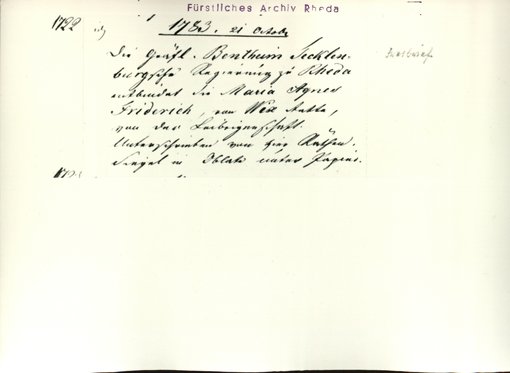 Fürstliches Archiv Rheda
1722 1783. 21 Octobr
Die Gräfl. Bentheim Tecklen-
burgsche Regierung zu Rheda
entbindet die Maria Agnes
Friderich, von Wex Stette,
von der Leibeigenschaft.
Unterschrieben von vier Räthen.
Siegel in Oblate unter Papier.